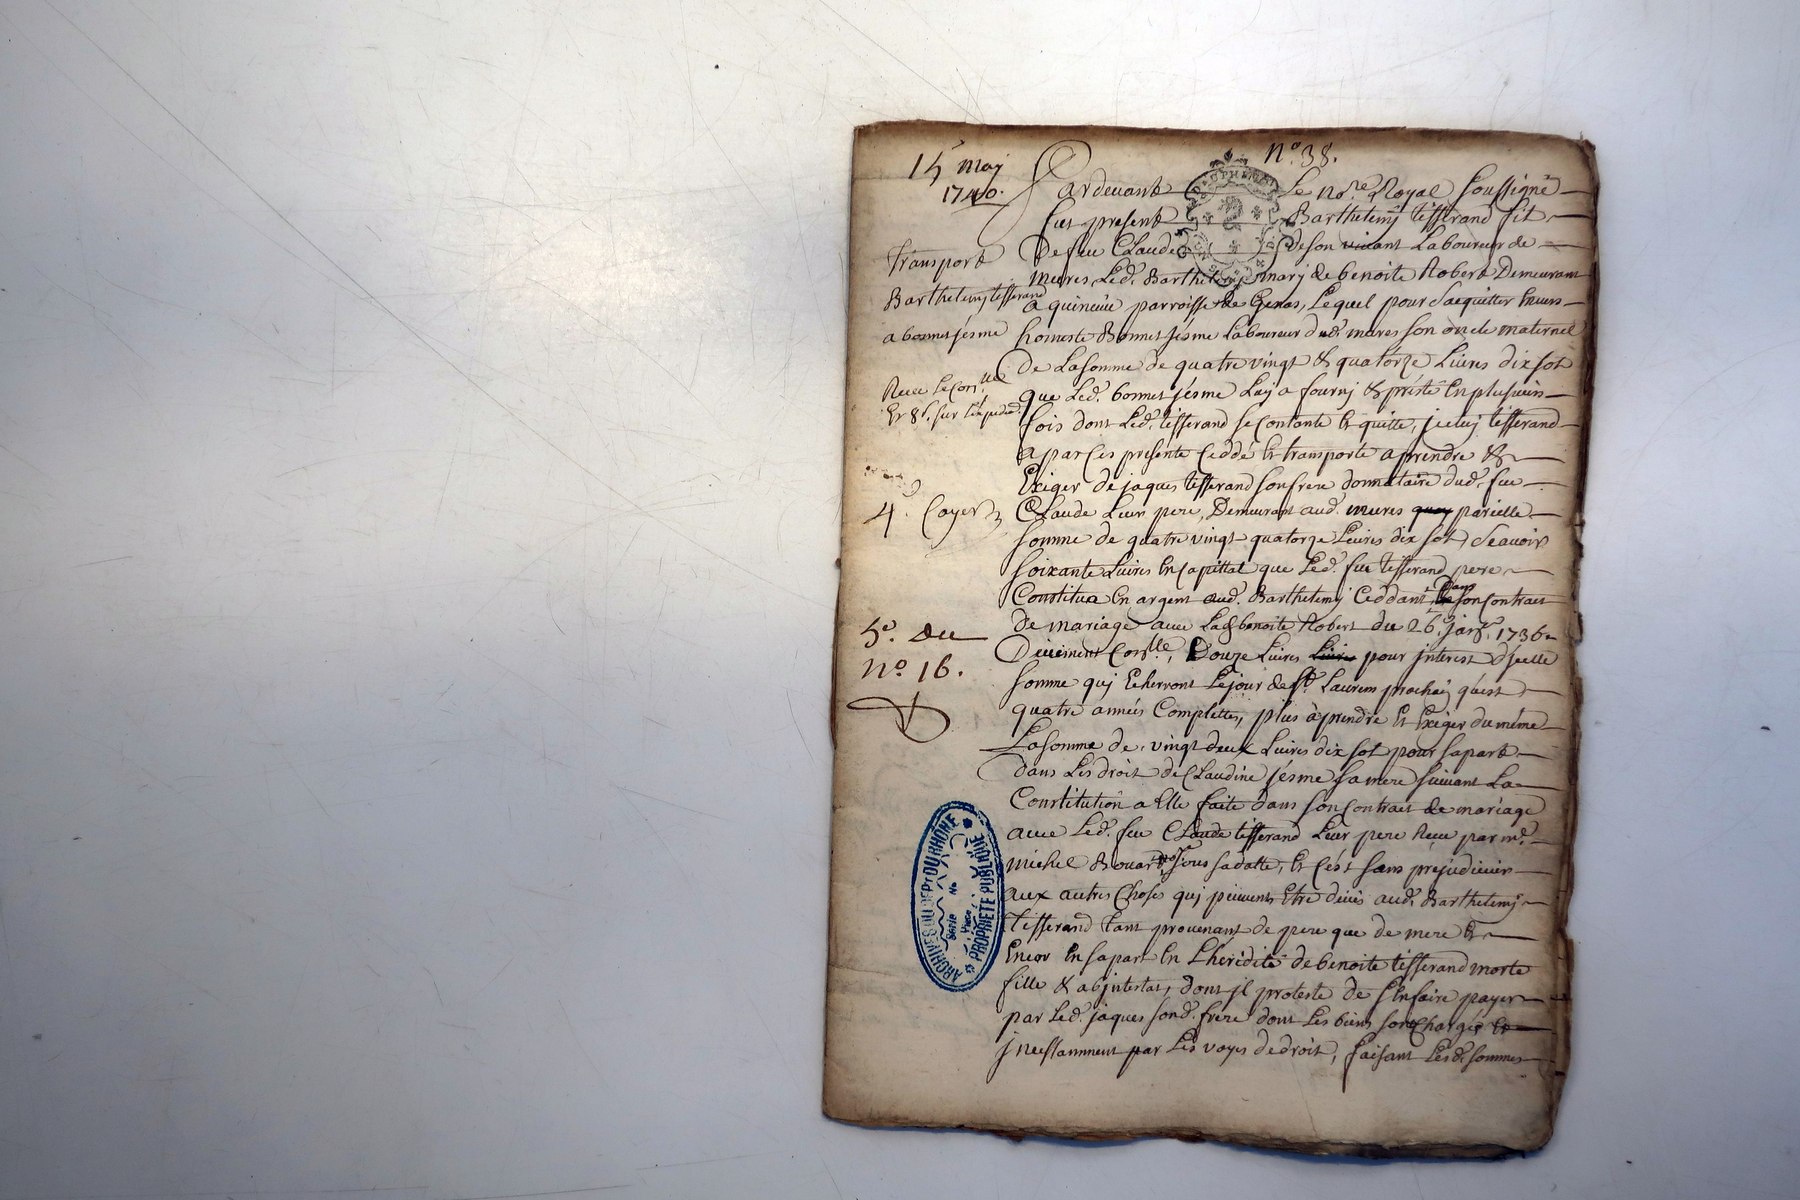 n.° 38.
15 maj
1740.
Transport
Barthelemj tisserand
a bonnet jésme
Et 8.s sur L'expedi.
4.e Cayer
5.e du
n.o 16.
DAUPHINE
Pardeuant Le no.re Royal soussigné
fut present Barthelemj tisserand fils
De feu Claude de son viuant Laboureur de
mures, Led. Barthelemj marj de benoite Robert Demeurant
a quincieu parroisse de Genas, Lequel pour s'acquitter Enuers
honneste Bonnet jésme Laboureur dud. mures son oncle maternel
De La somme de quatre vingt & quatorze Liures dix sol
que Led. bonnet jésme Luj a fournj & presté En plusieurs
fois dont Led. tisserand se contante Et quitte, jceluj tisserand
a par Ces presente Ceddé Et transporté a prendre &
Exiger de jaques tisserand son frere donnataire dud. feu
Claude Leur pere, Demeurant aud. mures parielle
somme de quatre vingt quatorze Liures dix sol, Scauoir
soixante Liures En Capittal que Led. feu tisserand pere
Constitua En argent aud. Barthelemj Ceddant Dans son Contrait
de mariage auec Lad. benoite Robert du 26.e janv. 1736
Deuëment Con.lle, Douze Liures pour jnterest d'jcelle
somme quj Echerront Le jour de St. Laurens prochain qu'est
quatre années Complettes, plus à prendre Et Exiger du même
La somme de vingt deux Liures dix sol pour sa part
dans Les droit de Claudine jésme sa mere suiuant La
Constitution a Elle faite dans son Contrait de mariage
auec Led. feu Claude tisserand Leur pere Reçu par m.e
michel Bouard no.re sous sa datte, Et C'est sans prejudicier
aux autres Choses quj peuuent Etre deües aud. Barthelemj
tisserand tant prouenant de pere que de mere Et
Encor En sa part En L'héridité de benoite tisserand morte
fille & abjntestat, dont jl proteste de s'En faire payer
par Led. jaques sond. frere dont Les biens sont Chargés Et
jncessamment par Les voyes de droit, faisant Lesd. sommes
ARCHIVES DU DÉPT DU RHÔNE
Série No
Pièce
PROPRIÉTÉ PUBLIQUE